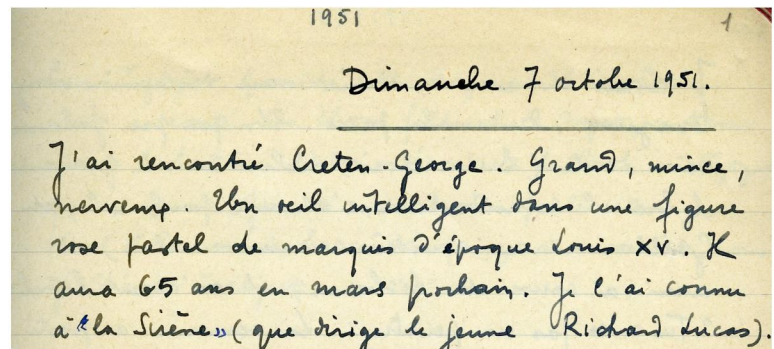 1951
1
Dimanche 7 octobre 1951.
J'ai rencontré Creten-George. Grand, mince,
nerveux. Un œil intelligent dans une figure
rose pastel de marquis d'époque Louis XV. Il
aura 65 ans en mars prochain. Je l'ai connu
à "la Sirène" (que dirige le jeune Richard Lucas).